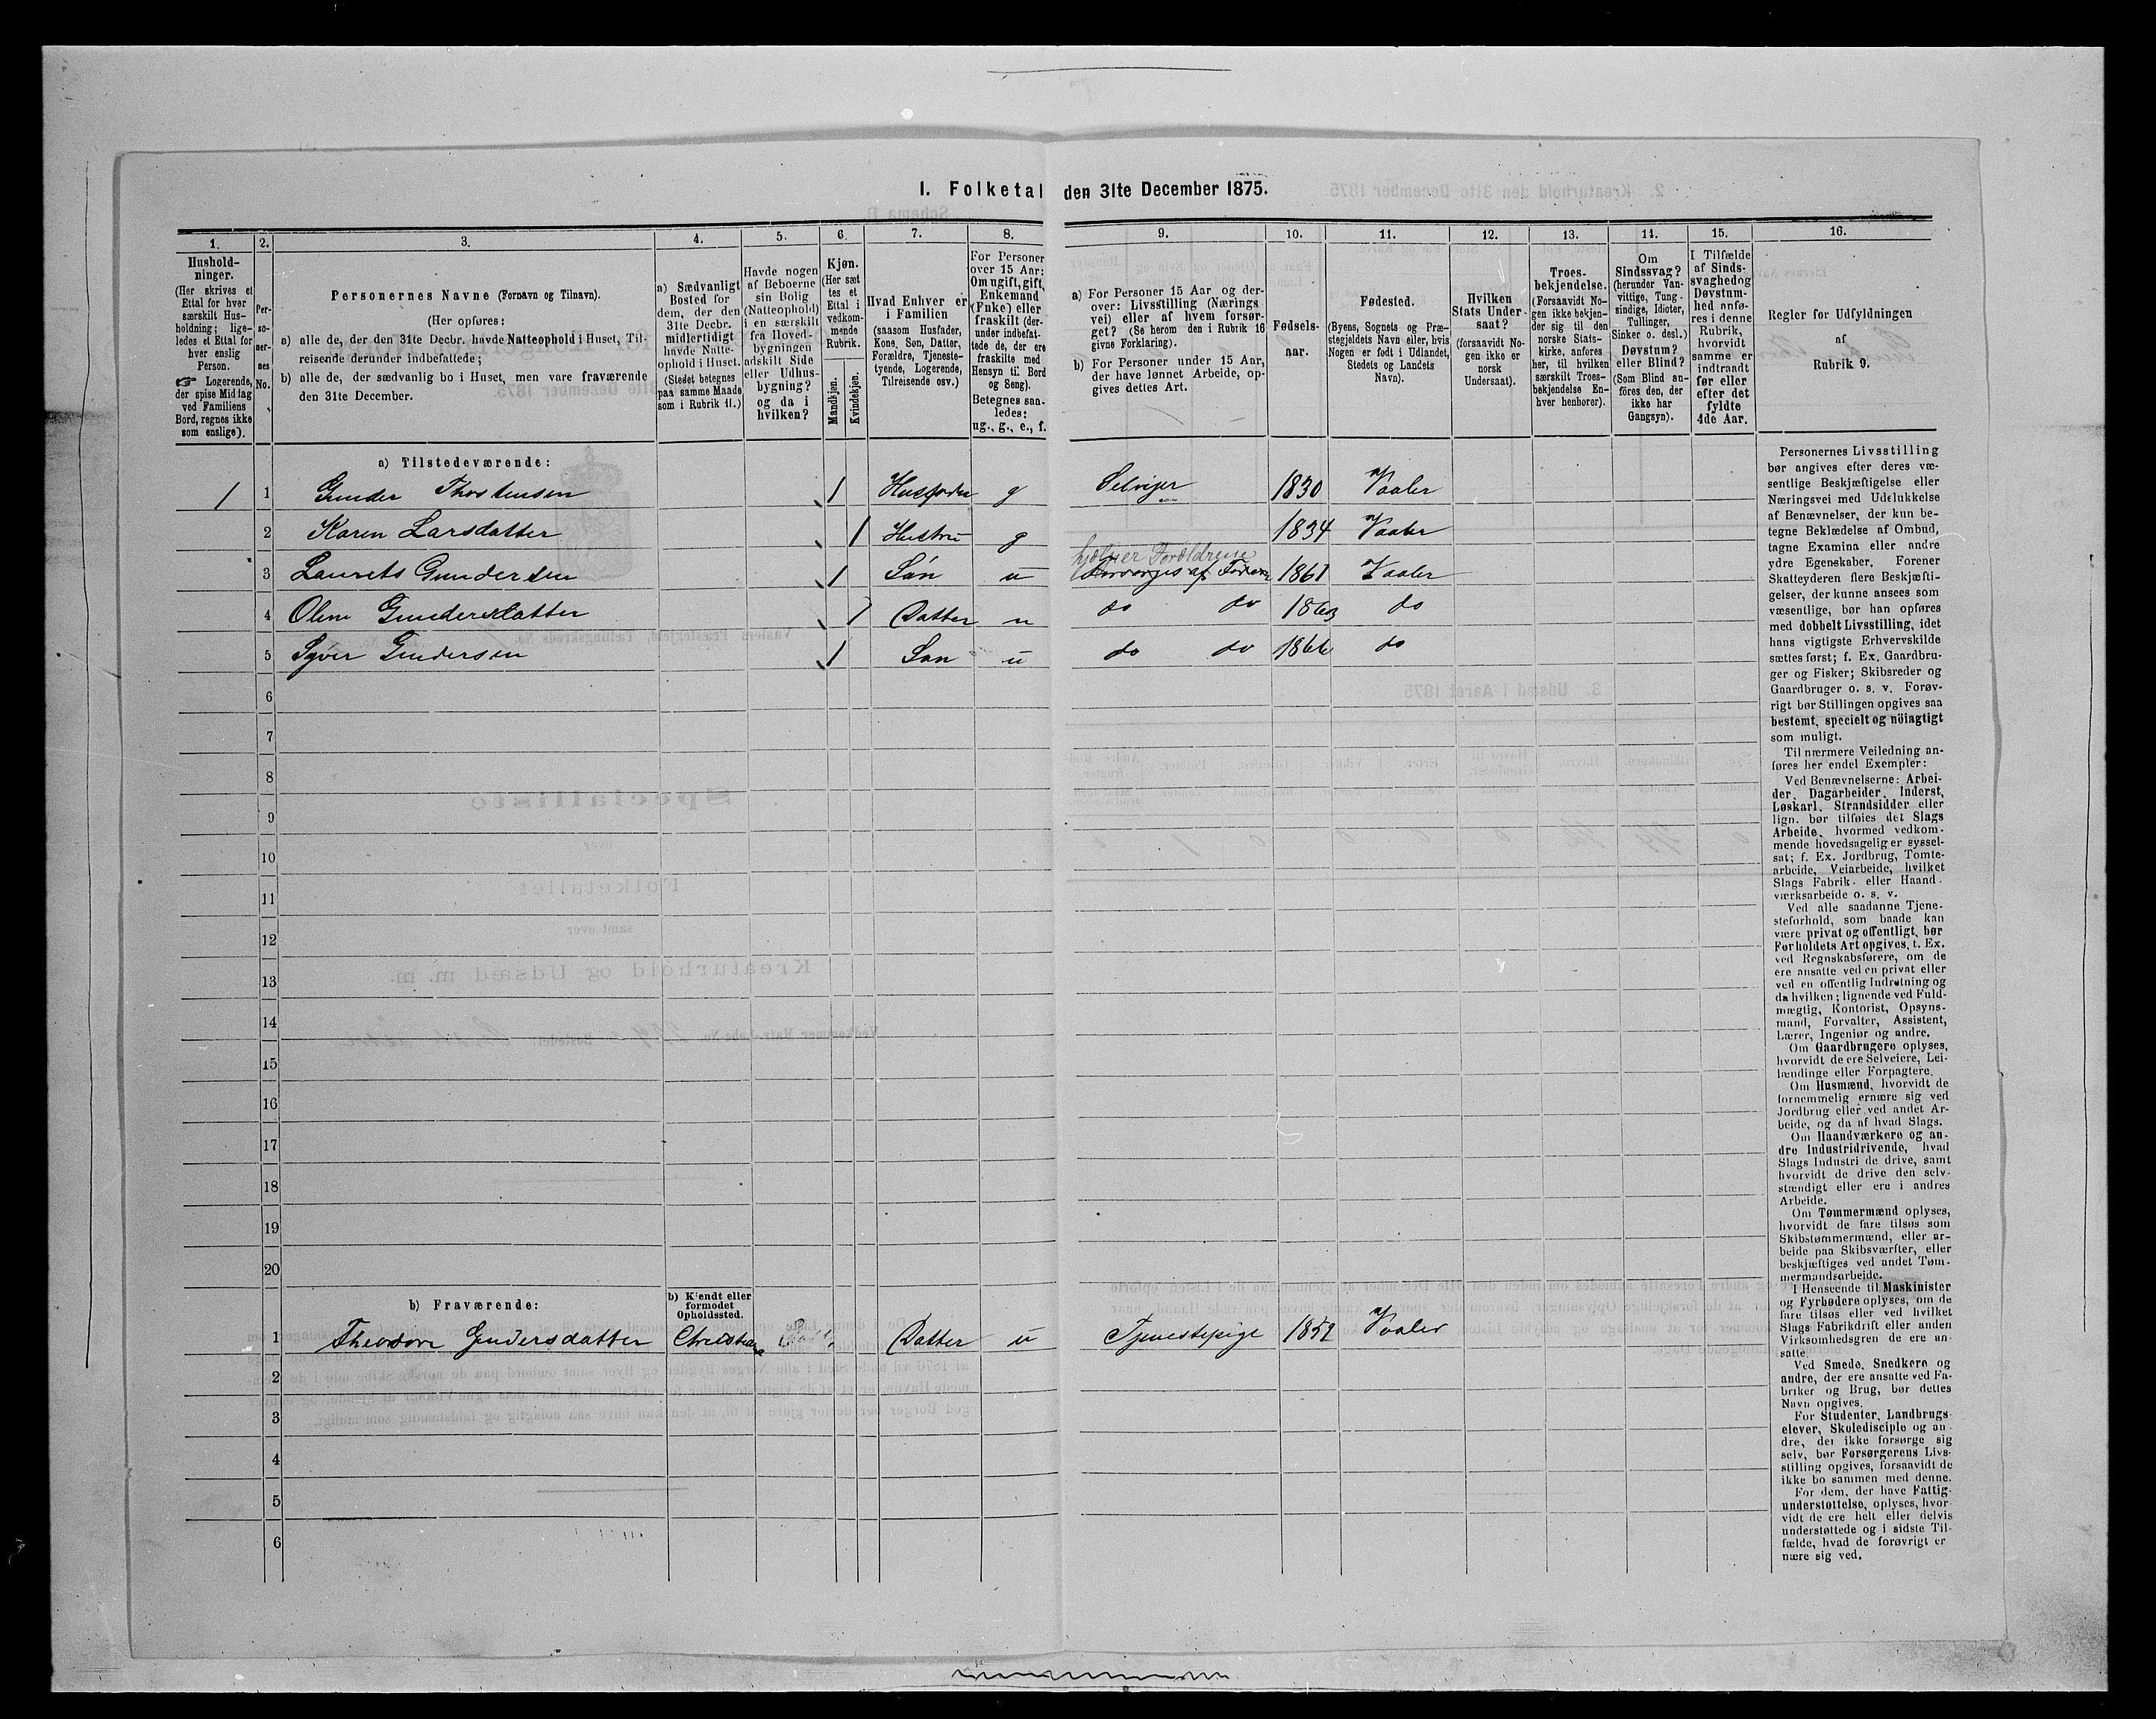 I. Folketal den 31te December 1875.
1. 2. 3. 4. 5. 6. 7. 8. 9. 10. 11. 12. 13. 14. 15. 16.
Hushold-
ninger.
(Her skrives et
Ettal for hver
særskilt Hus-
holdning; lige-
ledes et Ettal for
hver enslig
Person.
☞ Logerende,
der spise Middag
ved Familiens
Bord, regnes ikke
som enslige).
Per-
so-
ner-
nes
No.
Personernes Navne (Fornavn og Tilnavn).
(Her opføres:
a) alle de, der den 31te Decbr. havde Natteophold i Huset, Til-
reisende derunder indbefattede;
b) alle de, der sædvanlig bo i Huset, men vare fraværende
den 31te December.
a) Sædvanligt
Bosted for
dem, der den
31te Decbr.
midlertidigt
havde Natte-
ophold i Huset.
(Stedet betegnes
paa samme Maade
som i Rubrik 11.)
Havde nogen
af Beboerne
sin Bolig
(Natteophold)
i en særskilt
fra Hoved-
bygningen
adskilt Side
eller Udhus-
bygning?
og da i
hvilken?
Kjøn.
(Her sæt
tes et
Ettal i
vedkom-
mende
Rubrik.
Mandkjøn.
Kvindekjøn.
Hvad Enhver er
i Familien
(saasom Husfader,
Kone, Søn, Datter,
Forældre, Tjeneste-
tyende, Logerende,
Tilreisende osv.)
For Personer
over 15 Aar:
Om ugift, gift,
Enkemand
(Enke) eller
fraskilt (der-
under indbefat-
tede de, der ere
fraskilte med
Hensyn til Bord
og Seng).
Betegnes saa-
ledes:
ug., g., e., f.
a) For Personer 15 Aar og der-
over: Livsstilling (Nærings
vei) eller af hvem forsør-
get? (Se herom den i Rubrik 16
givne Forklaring).
b) For Personer under 15 Aar,
der have lønnet Arbeide, op-
gives dettes Art.
Fødsels-
aar.
Fødested.
(Byens, Sognets og Præ-
stegjeldets Navn eller, hvis
Nogen er født i Udlandet,
Stedets og Landets
Navn).
Hvilken
Stats Under-
saat?
(forsaavidt No-
gen ikke er
norsk
Undersaat).
Troes-
bekjendelse.
(Forsaavidt No-
gen ikke bekjen-
der sig til den
norske Stats-
kirke, anføres
her, til hvilken
særskilt Troes-
bekjendelse En-
hver henhører).
Om
Sindssvag?
(herunder Van-
vittige, Tung-
sindige, Idioter,
Tullinger,
Sinker o. desl.)
Døvstum?
eller Blind?
(Som Blind an-
föres den, der
ikke har
Gangsyn).
I Tilfælde
af Sinds-
svaghed og
Døvstum-
hed anfø-
res i denne
Rubrik,
hvorvidt
samme er
indtraadt
før eller
efter det
fyldte
4de Aar.
Regler for Udfyldningen
af
Rubrik 9.
a) Tilstedeværende:
1 1 Gunder Thostensen 1 Husfader g Selveier 1830 Vaaler
2 Karen Larsdatter 1 Hustru g 1834 Vaaler
hjælper Forældrene
3 Laurets Gundersen 1 Søn u Forsørges af 1861 Vaaler
4 Oline Gundersdatter 1 Datter u do do 1863 do
5 Syver Gundersen 1 Søn u do do 1866 do
6
7
8
9
10
11
12
13
14
15
16
17
18
19
20
b) Fraværende:
b) Kjendt eller
formodet
Opholdssted.
1 Theodore Gundersdatter Datter u Tjenestepige 1852 Vaaler
2
3
4
5
6
Personernes Livsstilling
bør angives efter deres væ-
sentlige Beskjæftigelse eller
Næringsvei med Udelukkelse
af Benævnelser, der kun be-
tegne Beklædelse af Ombud,
tagne Examina eller andre
ydre Egenskaber. Forener
Skatteyderen flere Beskjæfti-
gelser, der kunne ansees som
væsentlige, bør han opføres
med dobbelt Livsstilling, idet
hans vigtigste Erhvervskilde
sættes først; f. Ex. Gaardbru-
ger og Fisker; Skibsreder og
Gaardbruger o. s. v. Forøv-
rigt bør Stillingen opgives saa
bestemt, specielt og nöiagtigt
som muligt.
Til nærmere Veiledning an-
føres her endel Exempler:
Ved Benævnelserne: Arbei-
der, Dagarbeider, Inderst,
Løskarl, Strandsidder eller
lign. bør tilføies det Slags
Arbeide, hvormed vedkom-
mende hovedsagelig er syssel-
sat; f. Ex. Jordbrug, Tomte-
arbeide, Veiarbeide, hvilket
Slags Fabrik- eller Haand-
værksarbeide o. s. v.
Ved alle saadanne Tjene-
steforhold, som baade kan
være privat og offentligt, bør
Forholdets Art opgives, t. Ex.
ved Regnskabsførere, om de
ere ansatte ved en privat eller
ved en offentlig Indretning og
da hvilken; lignende ved Fuld-
mægtig, Kontorist, Opsyns-
mand, Forvalter, Assistent,
Lærer, Ingeniør og andre.
Om Gaardbrugere oplyses,
hvorvidt de ere Selveiere, Lei-
lændinge eller Forpagtere.
Om Husmænd, hvorvidt de
fornemmelig ernære sig ved
Jordbrug eller ved andet Ar-
beide, og da af hvad Slags.
Om Haandværkere og an-
dre Industridrivende, hvad
Slags Industri de drive, samt
hvorvidt de drive den selv-
stændigt eller ere i andres
Arbeide.
Om Tømmermænd oplyses,
hvorvidt de fare tilsøs som
Skibstømmermænd, eller ar-
beide paa Skibsværfter, eller
beskjæftiges ved andet Tøm-
mermandsarbeide.
I Henseende til Maskinister
og Fyrbødere oplyses, om de
fare tilsøs eller ved hvilket
Slags Fabrikdrift eller anden
Virksomhedsgren de ere an-
satte.
Ved Smede, Snedkere og
andre, der ere ansatte ved Fa-
briker og Brug, bør dettes
Navn opgives.
For Studenter, Landbrugs-
elever, Skoledisciple og an-
dre, der ikke forsørge sig
selv, bør Forsørgerens Livs-
stilling opgives, forsaavidt de
ikke bo sammen med denne.
For dem, der have Fattig-
understøttelse, oplyses, hvor-
vidt de ere helt eller delvis
understøttede og i sidste Til-
fælde, hvad de forøvrigt er
nære sig ved.